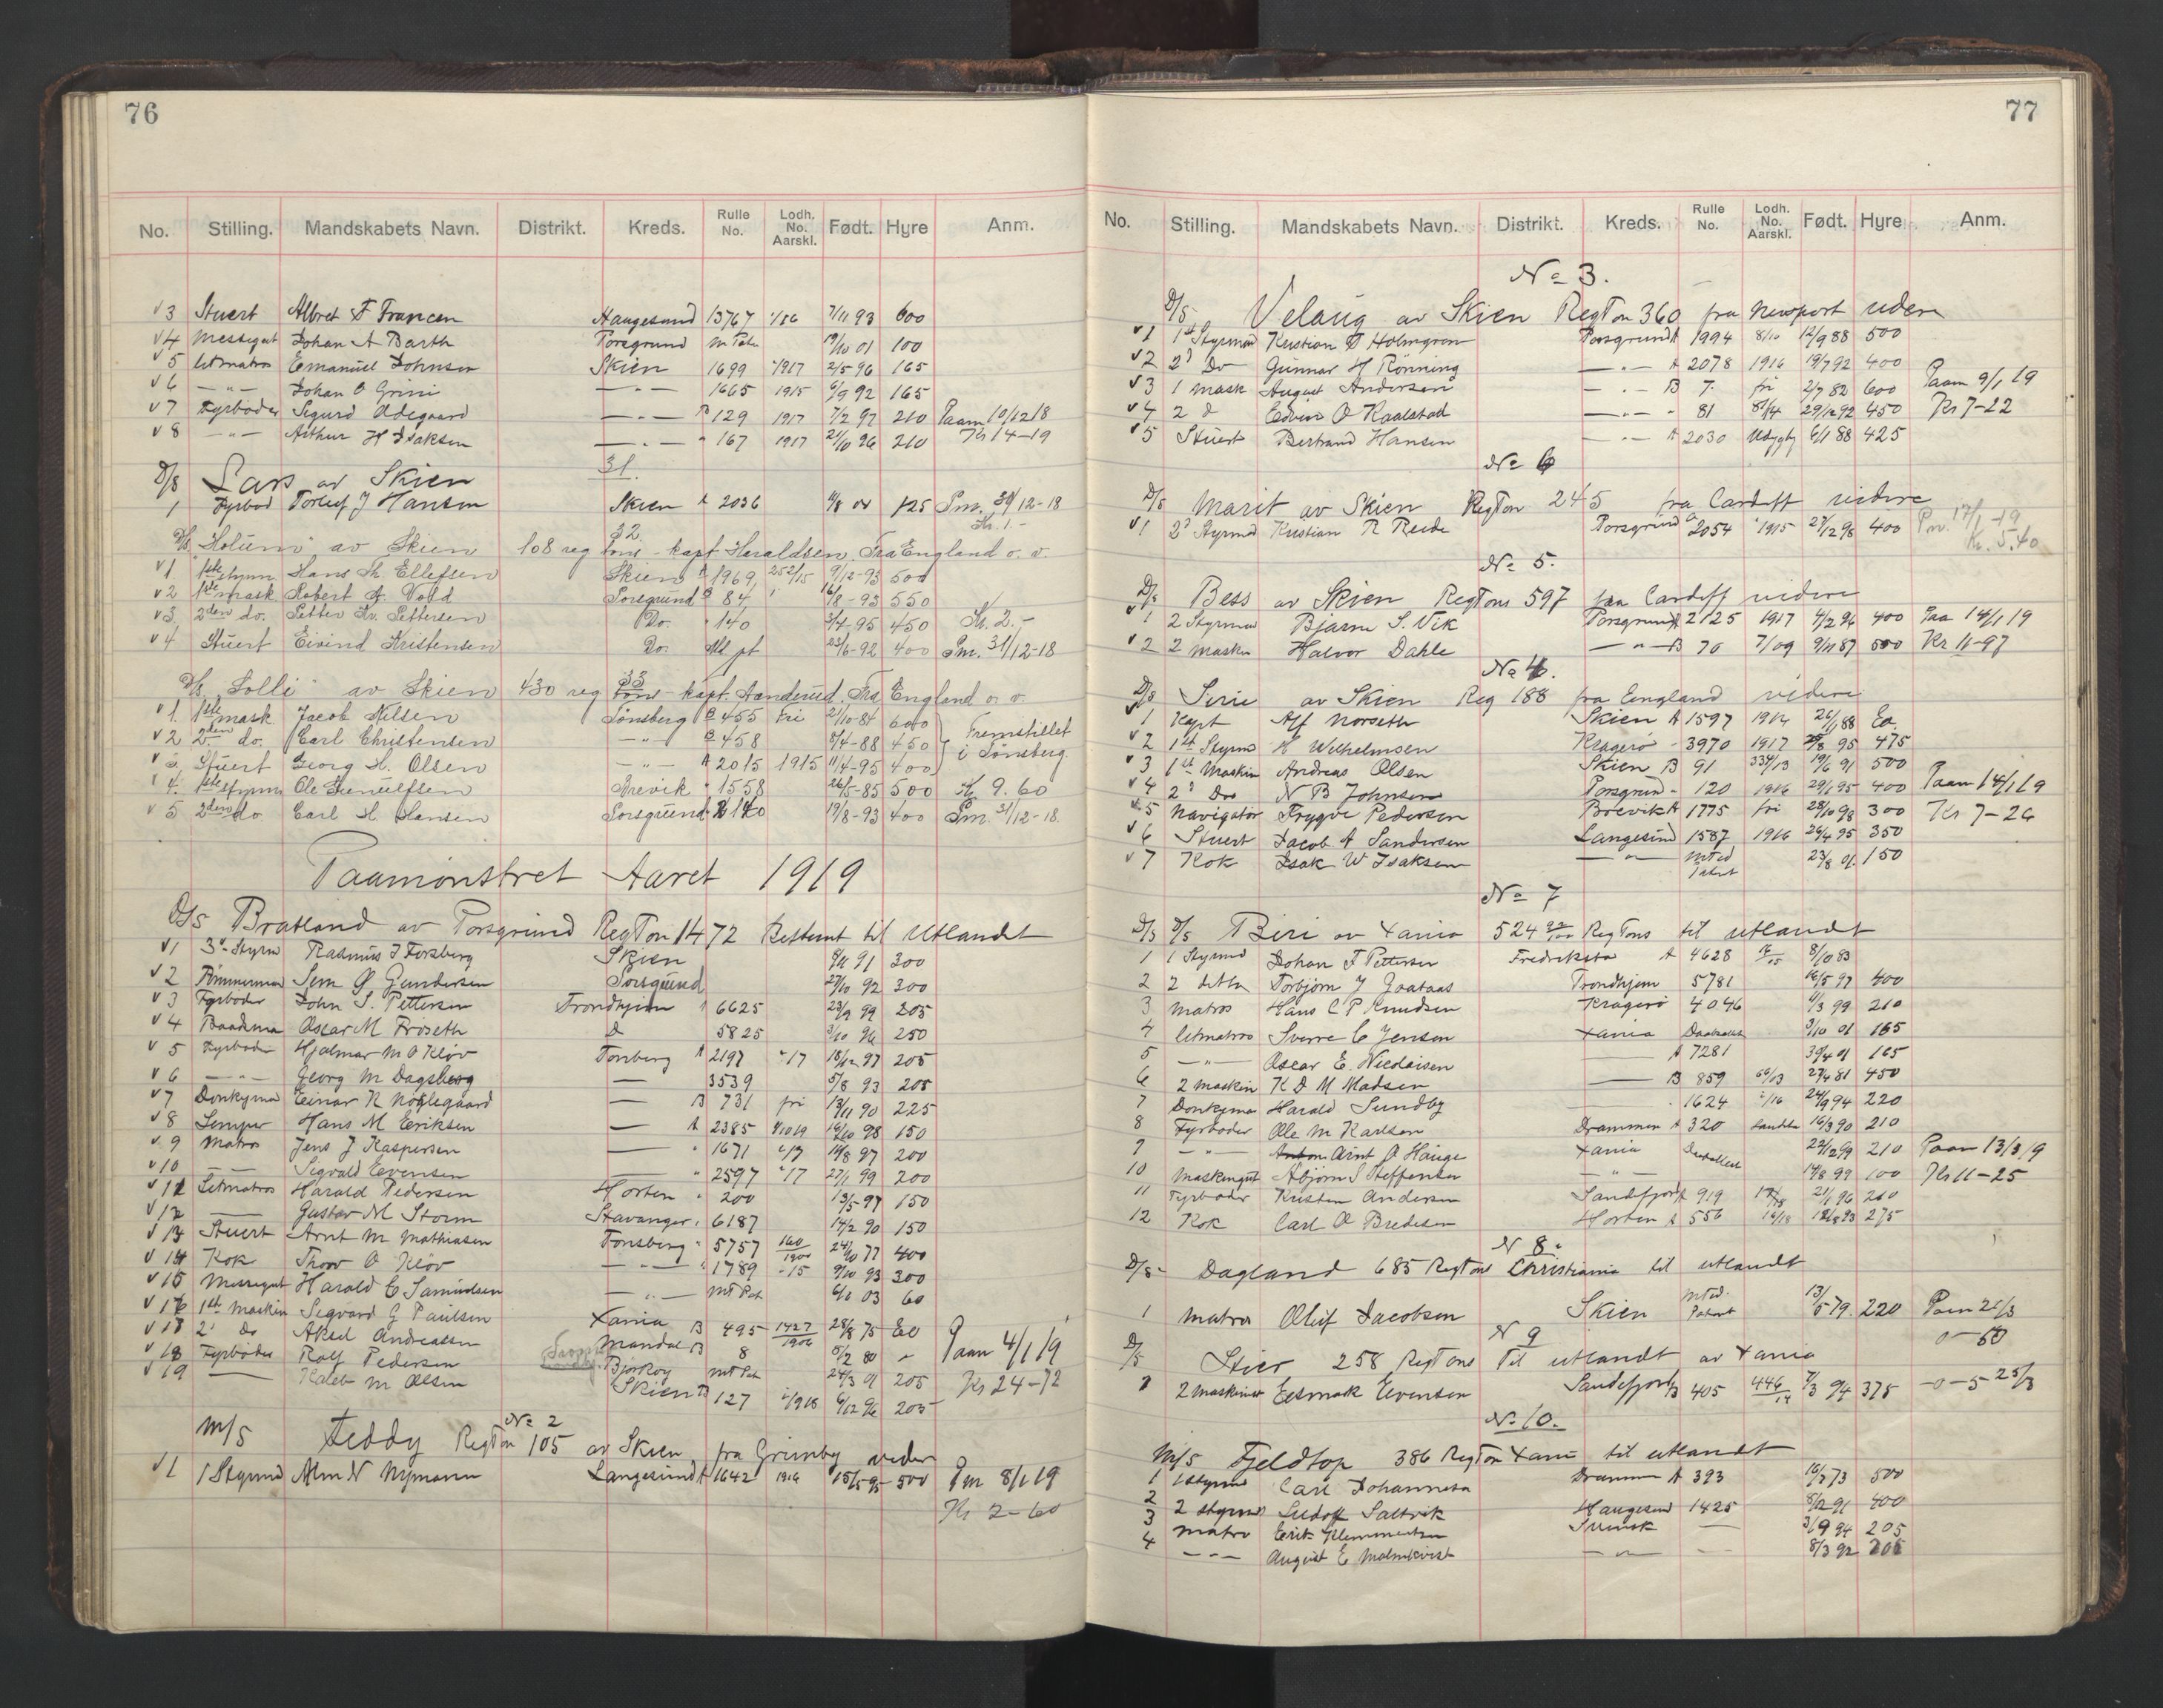 76
No. Stilling. Mandskabets Navn. Distrikt. Kreds. Rulle No. Lodh. No. Aarskl. Født. Hyre Anm.
3 Stuert Albret F Francen Haugesund 13767 1/16 7/11 93 600
4 Messegut Johan A Barth Porsgrund 19/10 01 100
5 letmatros Emanuel Johnsen Skien 1699 1917 2/5 96 165
6 —"— Johan O Grini —"— 1665 1915 6/9 92 165
7 Fyrbøder Sigurd Ødegaard —"— B 129 1917 7/2 97 210 Paam 10/12 18
8 —"— Arthur H Isaksen —"— " 167 1917 21/10 96 210 Kr 14-19
31.
D/S Lars av Skien
1 Fyrbød Torleif J Hansen Skien A 2036 125 Pm. 30/12-18
Kr. 1.-
32.
D/S "Holum" av Skien 108 reg tons - kapt Haraldsen, Fra England o. v.
1 1ste styrm. Hans Th. Ellefsen Skien A 1969, 252/15 9/12-93 500
2 1ste mask Robert A. Vold Porsgrund B 84 16/8-93 550
3 2den do. Petter Kr. Pettersen Do. " 140 3/4-95 450 Kr. 2.-
4 Stuert Eivind Kristensen Do. Md pt 23/6-92 400 Pm. 31/12-18
33
D/S "Solli" av Skien 430 reg tons - kapt. Aanderud. Fra England o. v.
1. 1ste mask Jacob Nilsen Tønsberg B 455 Fri 21/10-84 600
2 2den do. Carl Christensen —"— B 458 8/4-88 450 Fremstillet
3. Stuert Georg H. Olsen —"— A 2015 1915 11/4-95 400 i Tønsberg.
4. 1ste styrm Ole Stenulfsen Brevik " 1558 26/5-85 500 Kr 9.60
5 2den do Carl H. Hansen Porsgrund 140 19/8-93 400 Pm. 31/12-18.
Paamønstret Aaret 1919
D/S Bratland av Porsgrund RegTon 1472 Bestemt til Utlandt
1 3d Styrm Rasmus J Forsberg Skien 9/11 91 300
2 Tømmermand Sem G Gundersen Porsgrund 27/10 92 300
3 Fyrbøder John S. Pettersen Trondhjem A 6625 23/9 99 205
4 Baadsma Oscar M Frøseth D 5825 3/10 96 250
5 Fyrbøder Hjalmar M O Kløv Tønsberg A 2197 "17 18/12 97 205
6 —"— Georg M Dagsberg — 3539 5/8 93 205
7 Donkyma Einar R Nøglegaard — B 731 fri 13/11 90 225
8 Lemper Hans M Eriksen — A 2385 16/10 98 150
9 Matros Jens J Kaspersen — " 1671 "17 14/8 97 200
10 —"— Sigvald Evensen — " 2597 "17 27/1 99 200
11 Letmatros Harald Pedersen Horten " 200 13/5-97 150
12 — Gustav M Storm Stavanger " 6187 14/2 90 150
13 Stuert Arnt M Mathiasen Tønsberg " 5757 160/1900 24/10 77 400
14 Kok Thor O Kløv —"— " 1789 -15 9/10 93 300
15 Messegut Harald E Samuelsen —"— Mt Pat 6/6 03 60
16 1ste Maskin Segvard G Paulsen Xania B 495 1427/1906 28/8 75 Eo
17 2d do Aksel Andreassen Mandal B 8 5/2 80 " Paam 4/1 19
18 Fyrbøder Rolf Pedersen Bjørkøy Mt Pat 24/3 01 205 Kr 24-72
19 — Kaleb M Olsen Skien B 127 1/1918 6/12 96 205
No 2
M/S Teddy RegTon 105 av Skien fra Grimsby vider
1 1 Styrmd Alm N Nymann Langesund A 1642 1916 15/5-95 500 Pm 8/1 19
Kr 2-60
77
No. Stilling. Mandskabets Navn. Distrikt. Kreds. Rulle No. Lodh. No. Aarskl. Født. Hyre. Anm.
No 3.
D/S Velaug av Skien RegTon 360 fra Newport videre
1 1st Styrmand Kristian Holmgren Porsgrund A 1994 8/10 12/9 88 500
2 2d Do Gunnar H Rønning —"— A 2078 1916 19/7 92 400
3 1 Mask August Andersen —"— B 7. fri 2/7 82 600 Paam 9/1 19
4 2 d Edvin O Kaalstad —"— " 81 81/14 29/12 92 450 Kr 7-22
5 Stuert Bertrand Hansen —"— A 2030 Udygtg 6/1 88 425
No 6
D/S Marit av Skien RegTon 245 fra Cardiff videre
1 2d Styrmd Kristian R Reide Porsgrund A 2054 "1915 27/12 98 400 Pm. 17/1-19
Kr. 5.40
No 5.
D/S Bess av Skien RegTons 597 fra Cardiff videre
1 2 Styrman Bjarne S. Vik Porsgrund A 2125 1917 4/2 96 400 Paa 14/1 19
2 2 Maskn Halvor Dahle —"— B 70 7/09 9/11 87 500 Kr 11-97
No 4.
D/S Sirie av Skien Reg 188 fra England videre
1 Kapt Alf Norseth Skien A 1597 1914 26/1 88 Eo
2 1st Styrm H Wilhelmsen Kragerø - 3970 1917 95 475
3 1st Maskin Andreas Olsen Skien B 91 334/13 19/6 91 500
4 2d Do N B Johnsen Porsgrund - 120 1916 29/1 95 400 Paam 14/1 19
5 Navigatør Trygve Pedersen Brevik A 1775 fri 28/10 98 300 Kr 7-26
6 Stuert Jacob A Sandersen Langesund 1587 1916 26/4 95 350
7 Kok Isak W Isaksen —"— M Ted Patent 23/8 01. 150
No 7
D/S D/S Biri av Xania 524 RegTons til utlandt
1 1 Styrmd Johan F Pettersen Fredriksta A 4628 8/10 83
2 2 ditto Torbjørn J Gaataas Trondhjem 5781 16/5 97 400
3 Matros Hans C P Knudsen Kragerø 4046 4/3 99 210
4 letmatros Sverre C Jensen Xania 9/10 01 165
5 —"— Oscar E. Nicolaisen — A 7281 30/4 01 165
6 2 Maskin K D M Madsen — B 859 66/03 27/4 81 450
7 Donkyma Harald Sundby — " 1624 "/16 24/9 94 220
8 Fyrbøder Ole M Karlsen Drammen A 320 16/3 90 210
9 —"— Anton Arnt A Hauge Xania 22/12 99 210 Paam 13/3 19
10 Maskingut Asbjørn S Steffensen —"— 14/8 99 100 Kr 11-25
11 Fyrbøder Kristen Andersen Sandefjord A 919 21/1 96 210
12 Kok Carl O Bredesen Horten A 556 16/18 18/8 93 275
N 8.
D/S Dagland 685 RegTons Christiania til utlandt
1 Matros Oluf Jacobsen Skien M Ted. Patent 13/5 79. 220 Paam 25/3
0-50
N 9
D/S Stier 258 RegTons til utlandt av Xania
1 2 Maskinist Edmark Evensen Sandefjord B 405 446/14 7/3 94 375 -0-5 25/3
No 10.
M/S Fjeldtop 386 RegTon Xani til utlandt
1 1 Styrmd Carl Johannesen Drammen A 393 16/7 73 500
2 2 Styrmd Ludolf Saltvik Haugesund 1425 8/12 91 400
3 Matro Erik Klemmentsen Svensk — 3/9 94 205
4 —"— August E Malmkvist —"— — 8/3 92 205